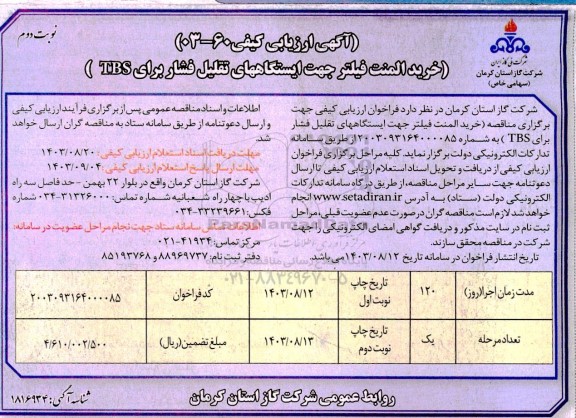 نوبت دوم
(آگهی ارزیابی کیفی ۶۰-۰۳)
(خرید المنت فیلتر جهت ایستگاههای تقلیل فشار برای TBS )
شرکت ملی گاز ایران
شرکت گاز استان کرمان
(سهامی خاص)
شرکت گاز استان کرمان در نظر دارد فراخوان ارزیابی کیفی جهت
برگزاری مناقصه (خرید المنت فیلتر جهت ایستگاههای تقلیل فشار
برای TBS ) به شماره ۲۰۰۳۰۹۳۱۶۴۰۰۰۰۸۵ از طریق سامانه
تدارکات الکترونیکی دولت برگزار نماید. کلیه مراحل برگزاری فراخوان
ارزیابی کیفی از دریافت و تحویل اسناد استعلام ارزیابی کیفی تا ارسال
دعوتنامه جهت سایر مراحل مناقصه، از طریق درگاه سامانه تدارکات
الکترونیکی دولت (ستاد) به آدرس www.setadiran.ir انجام
خواهد شد. لازم است مناقصه گران در صورت عدم عضویت قبلی، مراحل
ثبت نام در سایت مذکور و دریافت گواهی امضای الکترونیکی را جهت
شرکت در مناقصه محقق سازند.
تاریخ انتشار فراخوان در سامانه تاریخ ۱۴۰۳/۰۸/۱۲ می باشد.
اطلاعات و اسناد مناقصه عمومی پس از برگزاری فرآیند ارزیابی کیفی
و ارسال دعوتنامه از طریق سامانه ستاد به مناقصه گران ارسال خواهد
شد.
مهلت دریافت اسناد استعلام ارزیابی کیفی: ۱۴۰۳/۰۸/۲۰
مهلت ارسال پاسخ استعلام ارزیابی کیفی: ۱۴۰۳/۰۹/۰۴
شرکت گاز استان کرمان واقع در بلوار ۲۲ بهمن - حد فاصل سه راه
ادیب با چهار راه شعبانیه شماره تماس: ۳۱۳۲۶۰۰۰-۰۳۴ شماره
فکس: ۳۳۲۳۹۶۶۱-۰۳۴
اطلاعات تماس سامانه ستاد جهت انجام مراحل عضویت در سامانه:
مرکز تماس: ۴۱۹۳۴-۰۲۱
دفتر ثبت نام: ۸۸۹۶۹۷۳۷ و ۸۵۱۹۳۷۶۸
۰۲۱-۸۸۳۴۹۶۷۰-۵
مدت زمان اجرا(روز) ۱۲۰ تاریخ چاپ نوبت اول ۱۴۰۳/۰۸/۱۲ کد فراخوان ۲۰۰۳۰۹۳۱۶۴۰۰۰۰۸۵
تعداد مرحله یک تاریخ چاپ نوبت دوم ۱۴۰۳/۰۸/۱۳ مبلغ تضمین(ریال) ۴/۶۱۰/۰۰۲/۵۰۰
روابط عمومی شرکت گاز استان کرمان
شناسه آگهی: ۱۸۱۶۹۳۴